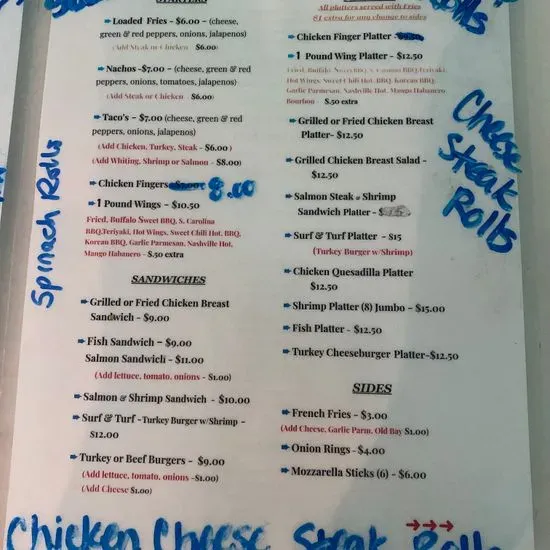 Rolls
STARTERS
Loaded Fries - $6.00 - (cheese,
green & red peppers, onions, jalapenos)
(Add Steak or Chicken $6.00)
Nachos -$7.00 - (cheese, green & red
peppers, onions, tomatoes, jalapenos)
(Add Steak or Chicken $6.00)
Taco's - $7.00 (cheese, green & red
peppers, onions, jalapenos)
(Add Chicken, Turkey, Steak - $6.00 )
(Add Whiting, Shrimp or Salmon - $8.00)
Chicken Fingers 8.00
1 Pound Wings - $10.50
Fried, Buffalo Sweet BBQ, S. Carolina
BBQ,Teriyaki, Hot Wings, Sweet Chili Hot, BBQ,
Korean BBQ, Garlic Parmesan, Nashville Hot,
Mango Habanero - $.50 extra
SANDWICHES
Grilled or Fried Chicken Breast
Sandwich - $9.00
Fish Sandwich - $9.00
Salmon Sandwich - $11.00
(Add lettuce, tomato, onions - $1.00)
Salmon & Shrimp Sandwich - $10.00
Surf & Turf -Turkey Burger w/Shrimp -
$12.00
Turkey or Beef Burgers - $9.00
(Add lettuce, tomato, onions -$1.00)
(Add Cheese $1.00)
All platters served with Fries
$1 extra for any change to sides
Chicken Finger Platter
1 Pound Wing Platter - $12.50
Fried, Buffalo, Sweet BBQ, S. Carolina BBQ,Teriyaki,
Hot Wings, Sweet Chili Hot, BBQ, Korean BBQ,
Garlic Parmesan, Nashville Hot, Mango Habanero
Bourbon - $.50 extra
Grilled or Fried Chicken Breast
Platter- $12.50
Grilled Chicken Breast Salad -
$12.50
Salmon Steak & Shrimp
Sandwich Platter -
Surf & Turf Platter - $15
(Turkey Burger w/Shrimp)
Chicken Quesadilla Platter
$12.50
Shrimp Platter (8) Jumbo - $15.00
Fish Platter - $12.50
Turkey Cheeseburger Platter-$12.50
SIDES
French Fries - $3.00
(Add Cheese, Garlic Parm, Old Bay $1.00)
Onion Rings - $4.00
Mozzarella Sticks (6) - $6.00
Spinach Rolls
Cheese
Steak
Rolls
Chicken Cheese Steak Rolls